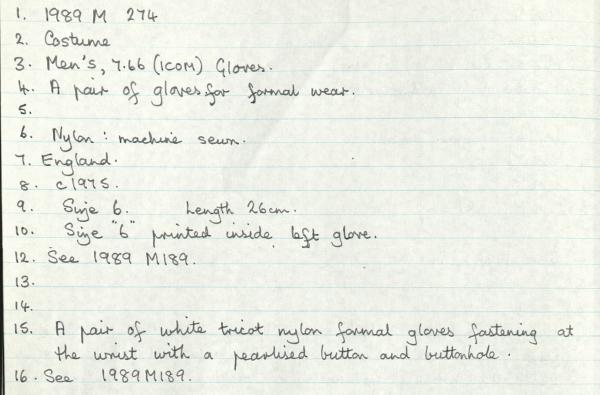 1. 1989 M 274
2. Costume
3. Men's, 7.66 (ICOM) Gloves.
4. A pair of gloves for formal wear.
5.
6. Nylon : machine sewn.
7. England.
8. c1975.
9. Size 6. Length 26cm.
10. Size "6" printed inside left glove.
12. See 1989 M189.
13.
14.
15. A pair of white tricot nylon formal gloves fastening at
the wrist with a pearlised button and buttonhole.
16. See 1989M189.